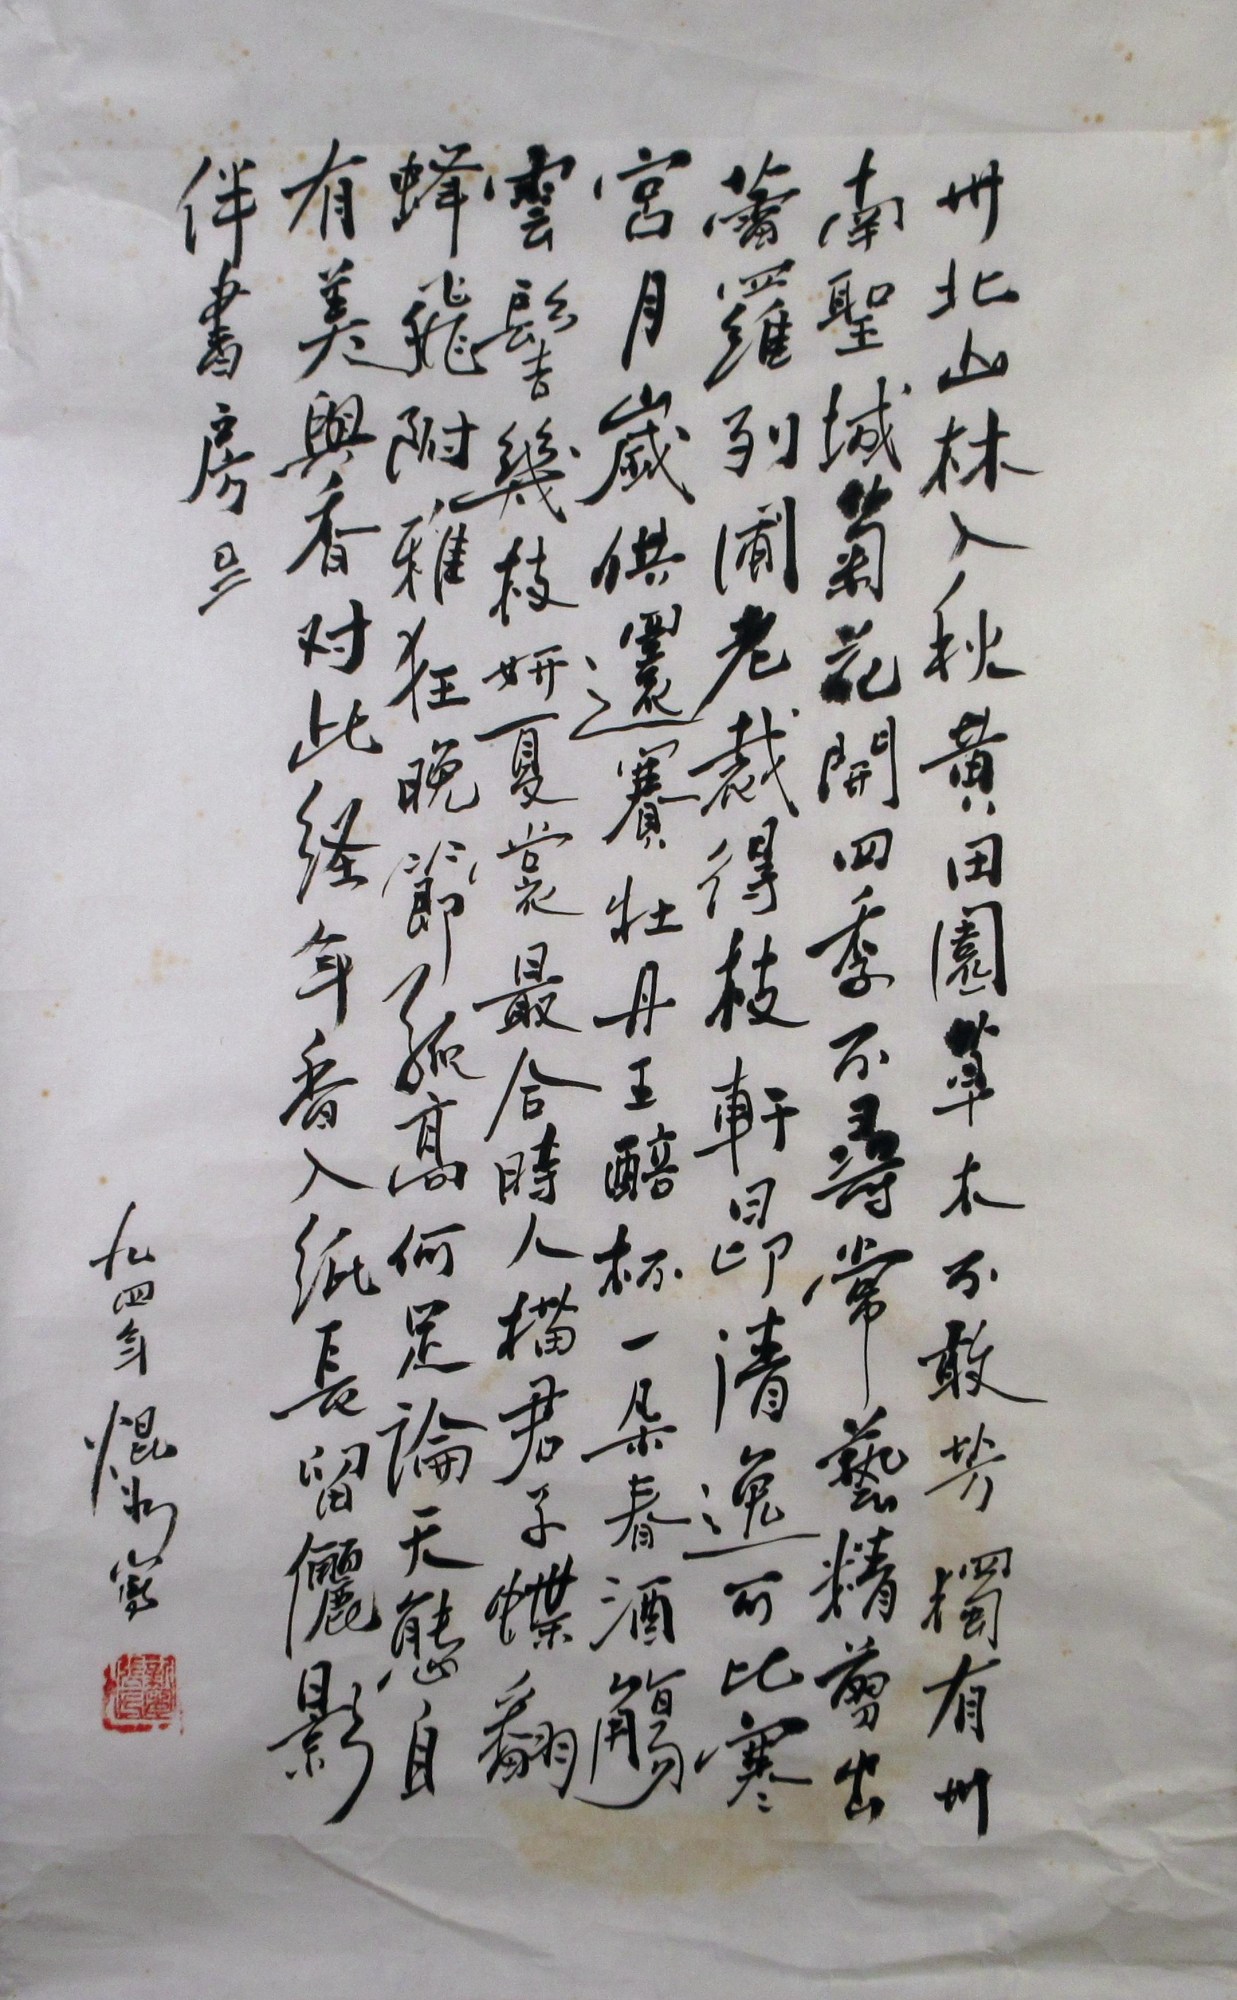 卅北山林入秋黄田園草木不敢芳獨有卅
南聖域菊花開四季不尋常藝精剪出
蕾羅列圃老裁得枝軒昂清逸可比寒
宮月歲供還賽牡丹王醅杯一朵春酒觴
雲髻幾枝妍夏裳最合時人描君子蝶翻
蜂飛附雅狂晚節孤高何足論天態自
有美與香对此经年香入紙長留儷影
伴書房
九四年焜 寫